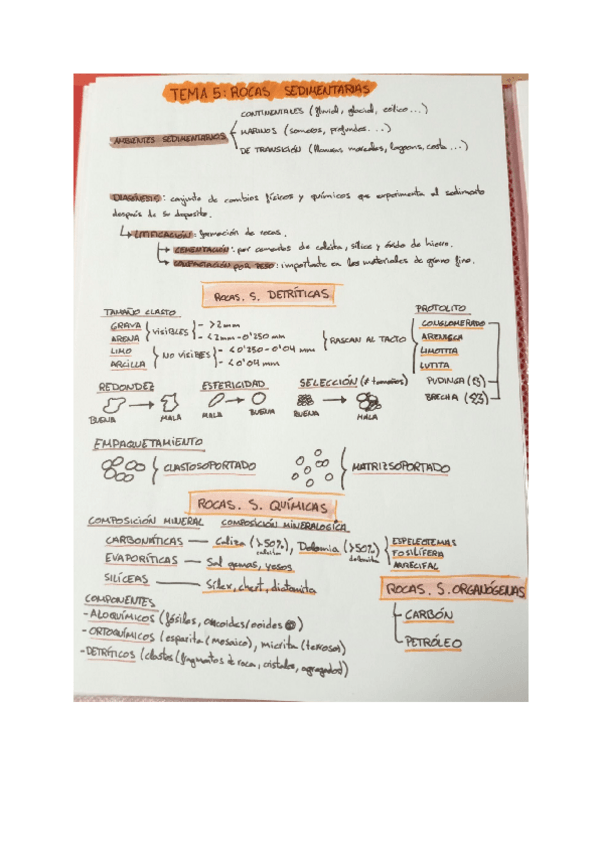 TEMA 5: ROCAS SEDIMENTARIAS
AMBIENTES SEDIMENTARIOS
CONTINENTALES (fluvial, glacial, eólico...)
MARINOS (someros, profundos...)
DE TRANSICIÓN (llanuras mareales, lagoons, costa...)
DIAGÉNESIS: conjunto de cambios físicos y químicos que experimenta el sedimento
después de su deposito.
LITIFICACIÓN: formación de rocas.
CEMENTACIÓN: por cementos de calcita, sílice y óxido de hierro.
COMPACTACIÓN POR PESO: importante en los materiales de grano fino.
ROCAS. S. DETRÍTICAS
TAMAÑO CLASTO
GRAVA
ARENA
VISIBLES
- >2mm
- <2mm-0'250 mm
LIMO
ARCILLA
NO VISIBLES
- <0'250-0'04 mm
- <0'04 mm
RASCAN AL TACTO
PROTOLITO
CONGLOMERADO
ARENISCA
LIMOTITA
LUTITA
PUDINGA
BRECHA
REDONDEZ
BUENA
MALA
ESFERICIDAD
MALA
BUENA
SELECCIÓN (≠ tamaños)
BUENA
MALA
EMPAQUETAMIENTO
CLASTOSOPORTADO
MATRIZSOPORTADO
ROCAS. S. QUÍMICAS
COMPOSICIÓN MINERAL
COMPOSICIÓN MINERALOGICA
CARBONÁTICAS — Caliza (>50% calcita), Dolomia (>50% dolomita)
ESPELEOTEMAS
FOSILÍFERA
ARRECIFAL
EVAPORÍTICAS — Sal gemas, yesos
SILÍCEAS — Sílex, chert, diatomita
COMPONENTES
- ALOQUÍMICOS (fósiles, oncoides/ooides)
- ORTOQUÍMICOS (esparita (mosaico), micrita (terroso)
- DETRÍTICOS (clastos (fragmentos de roca, cristales, agregados)
ROCAS. S. ORGANÓGENAS
CARBÓN
PETRÓLEO